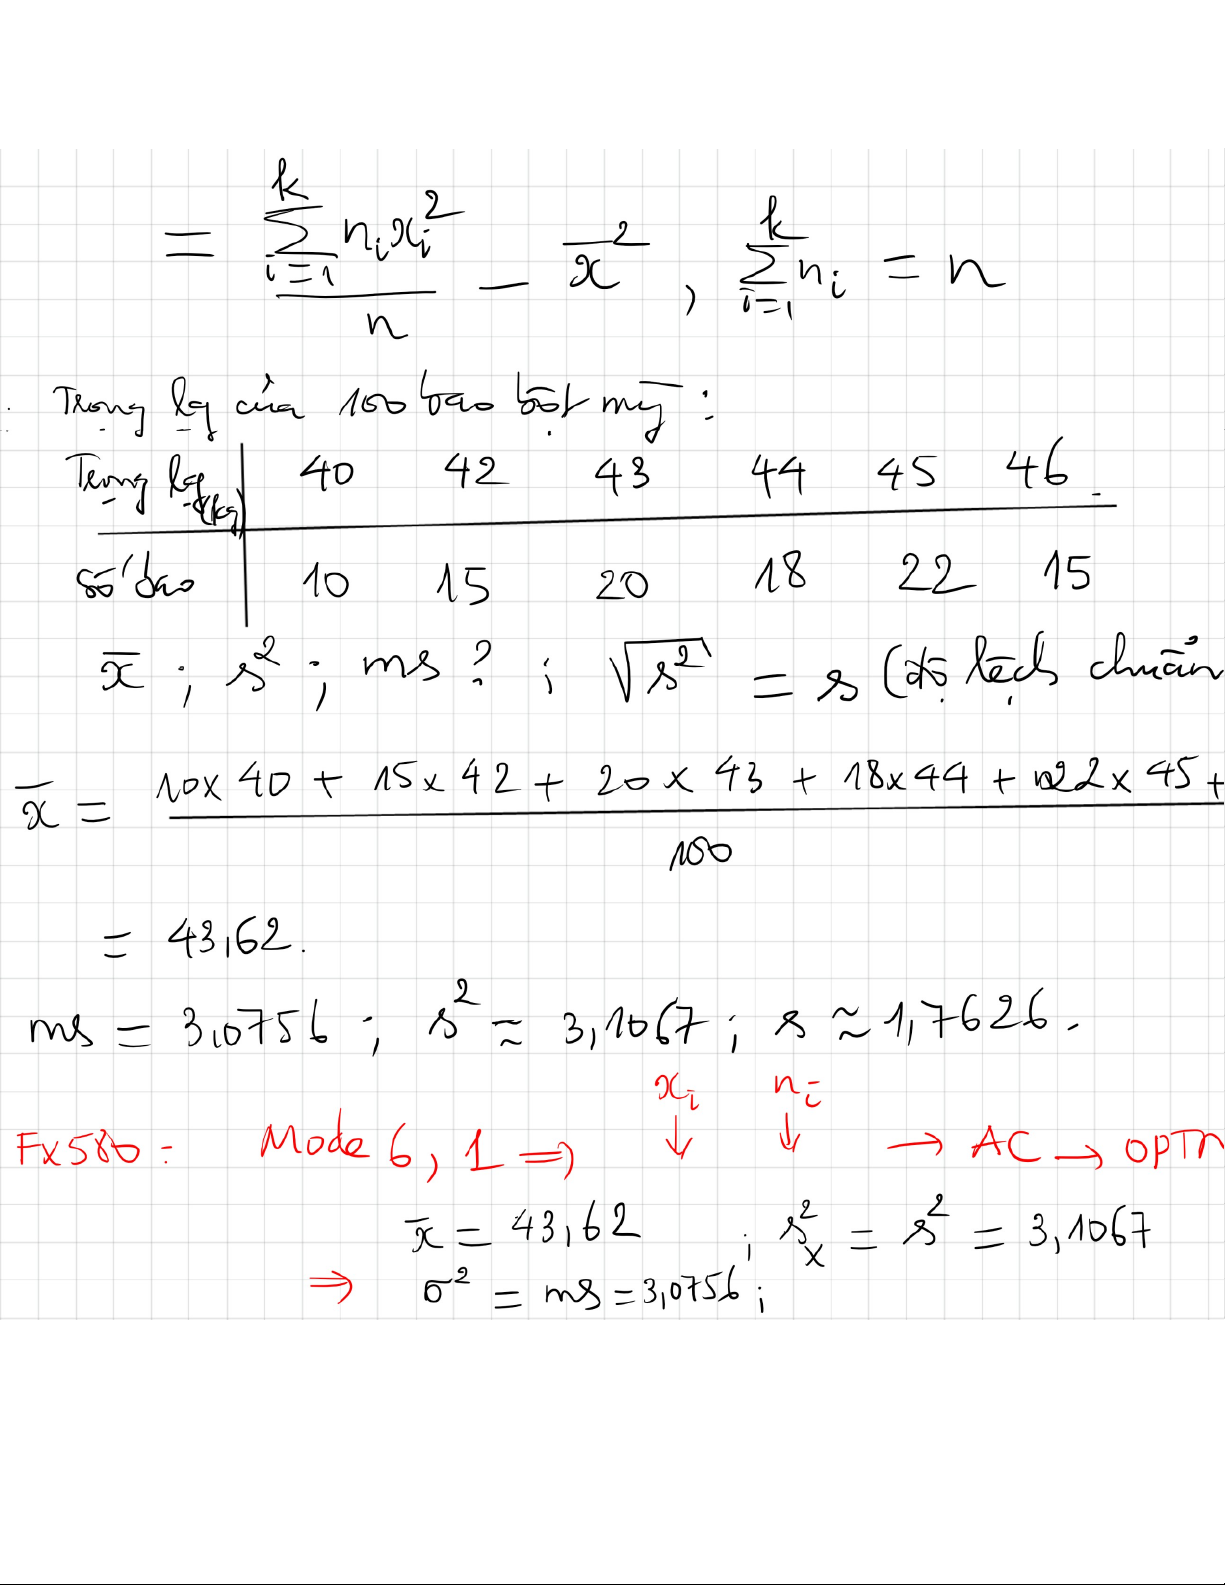 = \frac{\sum_{i=1}^{k} n_i x_i^2}{n} - \overline{x}^2 , \sum_{i=1}^{k} n_i = n
Trọng lg của 100 bao bột mỹ :
Trọng lg (kg) 40 42 43 44 45 46
số bao 10 15 20 18 22 15
\overline{x} ; s^2 ; ms ? ; \sqrt{s^2} = s (độ lệch chuẩn
\overline{x} = \frac{10x 40 + 15x 42 + 20 x 43 + 18x44 + 22x 45 +}{100}
= 43,62.
ms = 3,0756 ; s^2 ≈ 3,1067 ; s ≈ 1,7626.
x_i n_i
Fx580 : Mode 6, 1 ⇒ ↓ ↓ → AC → OPTN
\overline{x} = 43,62 ; s_x^2 = s^2 = 3,1067
⇒ σ^2 = ms = 3,0756 ;